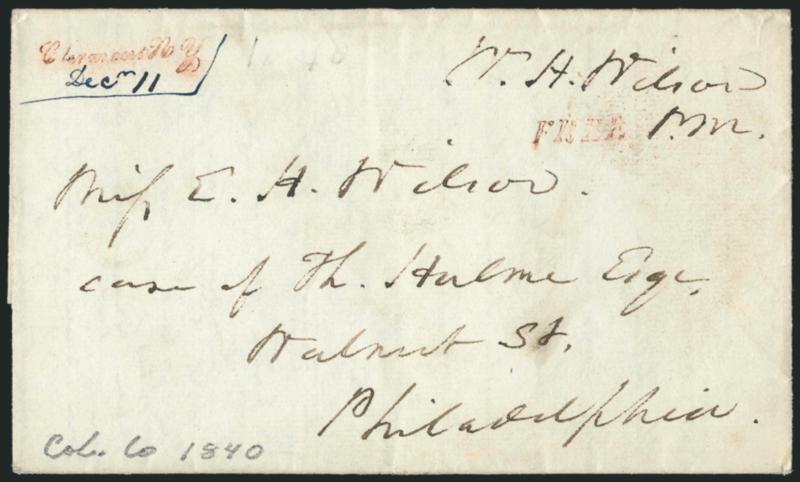 Clermont N.Y
Decr 11
W. H. Wilson
P.M.
FREE
Miss E. H. Wilson.
care of Th. Hulme Esqr.
Walnut St.
Philadelphia.
Col. Co 1840